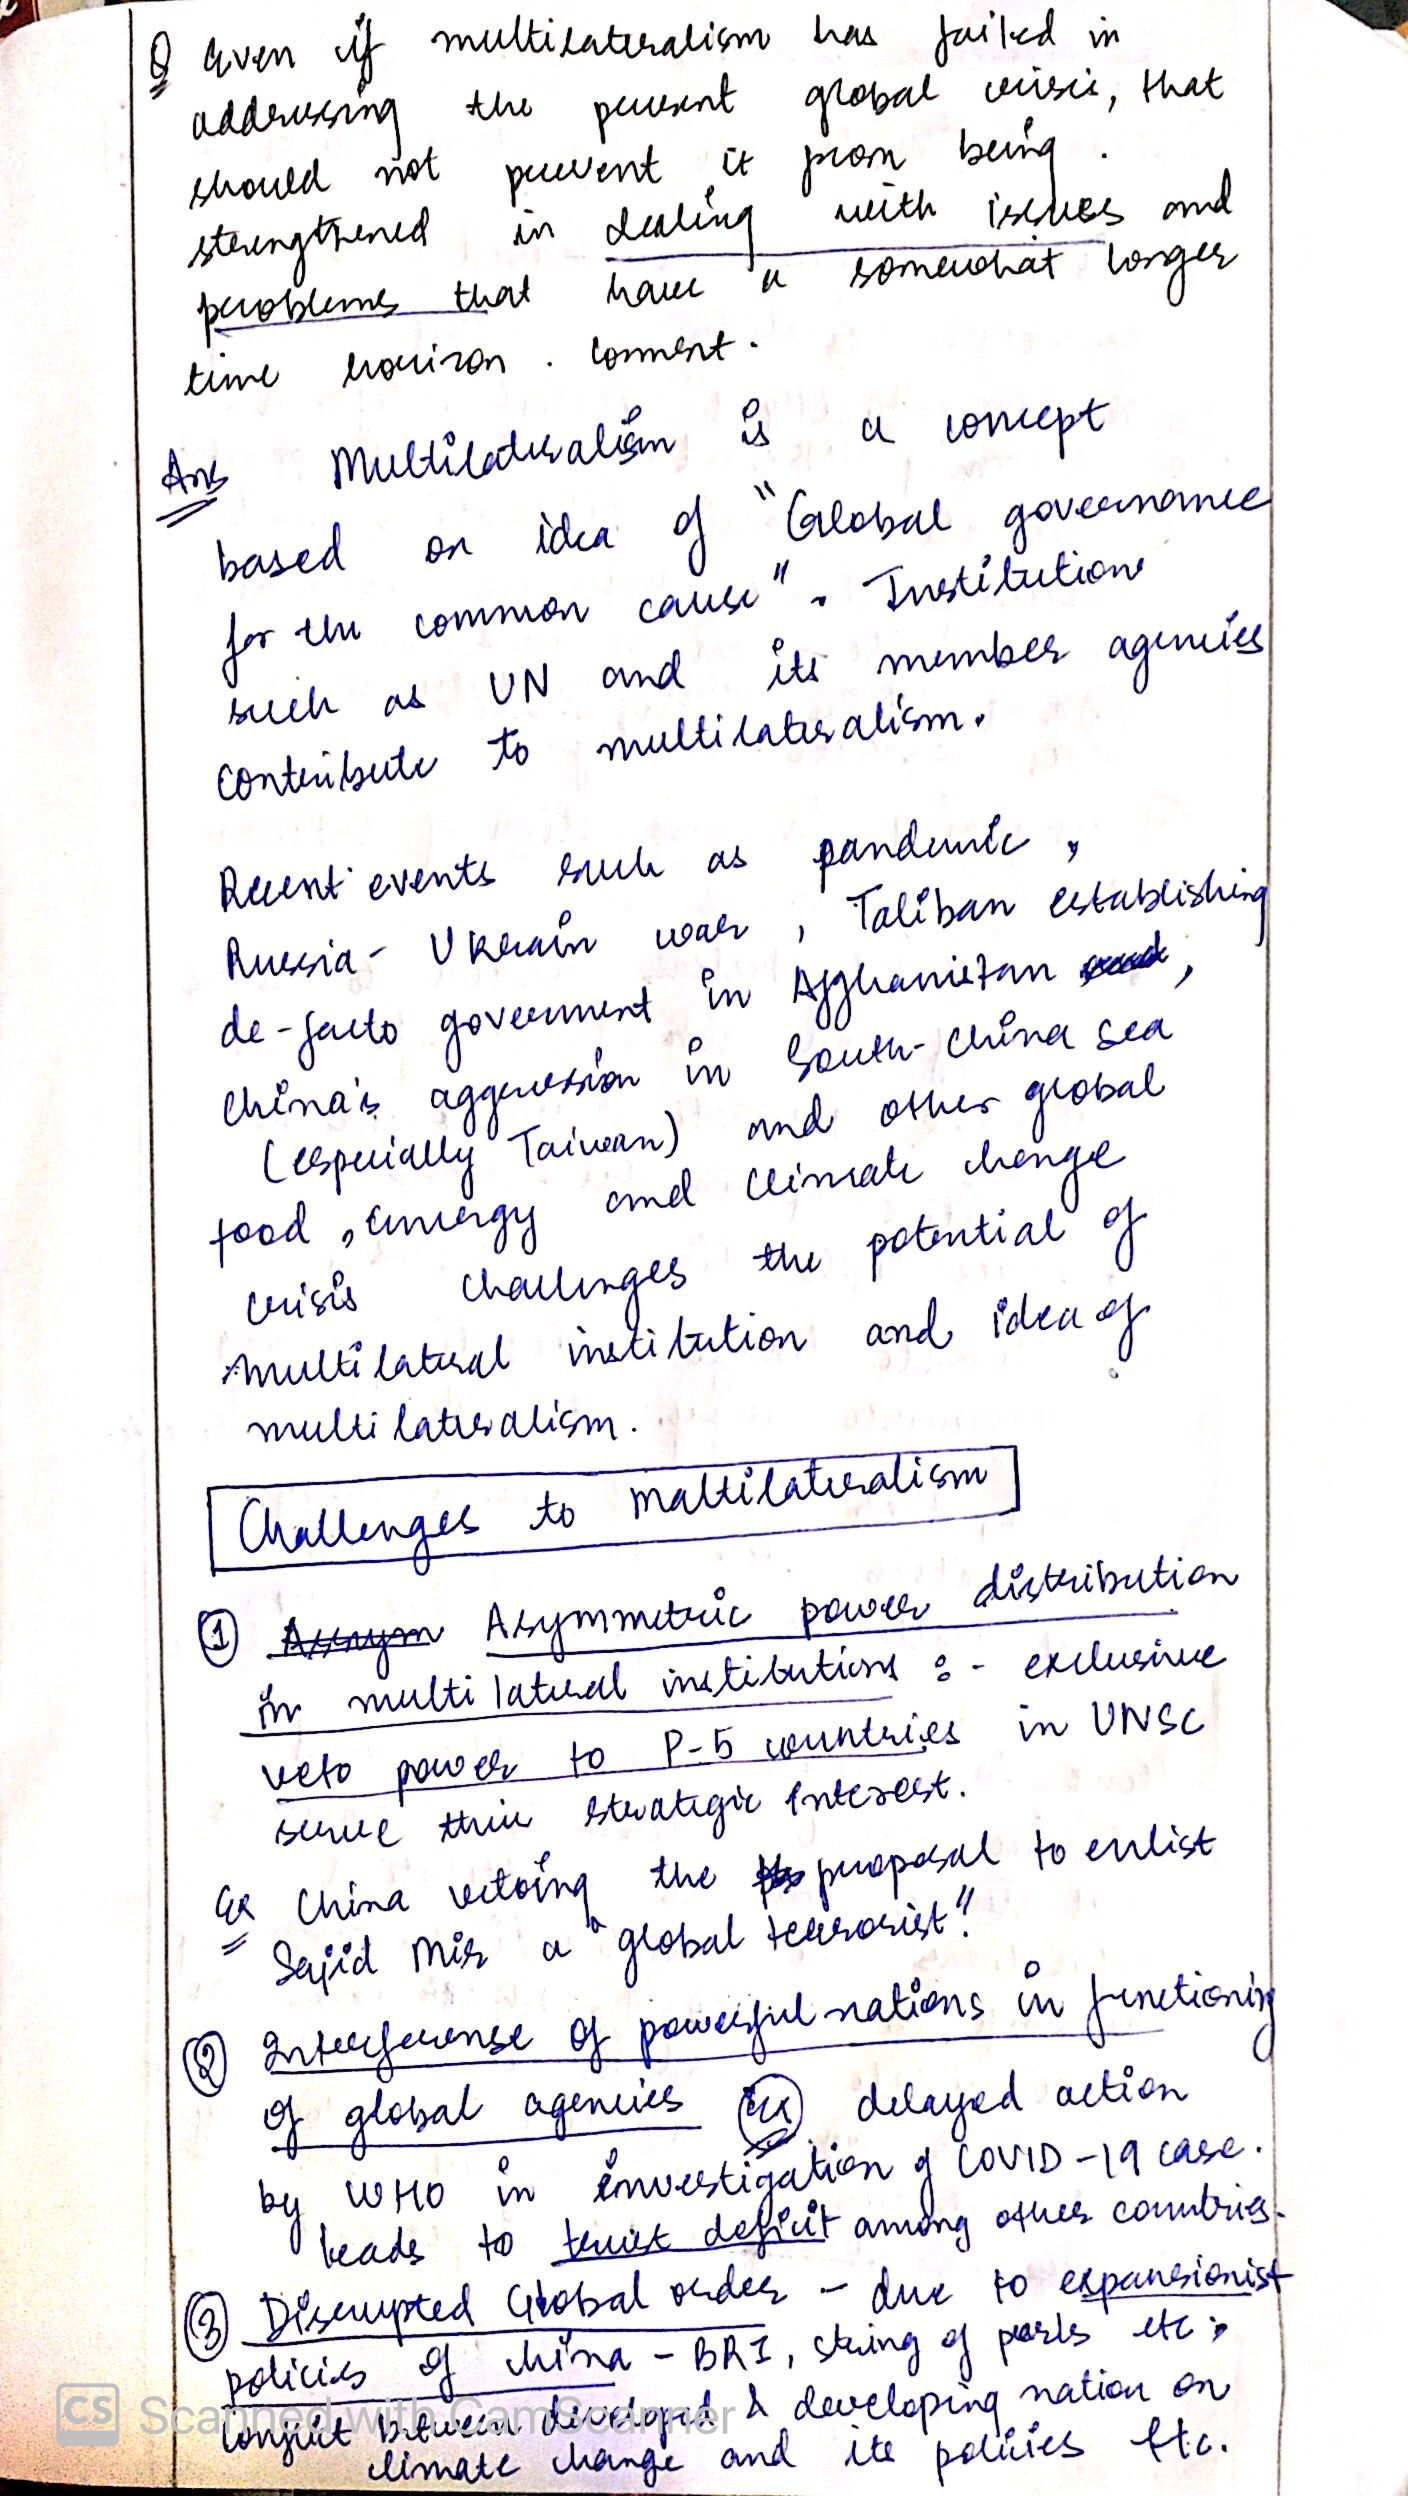 Q Even if multilateralism has failed in
addressing the present global crisis, that
should not prevent it from being.
strengthened in dealing with issues and
problems that have a somewhat longer
time horizon. Comment.
Ans Multilateralism is a concept
based on idea of "Global governance
for the common cause". Institutions
such as UN and its member agencies
contribute to multilateralism.
Recent events such as pandemic,
Russia-Ukrain war, Taliban establishing
de-facto government in Afghanistan,
China's aggression in South-China sea
(especially Taiwan) and other global
food, energy and climate change
crisis challenges the potential of
multilateral institution and idea of
multilateralism.
Challenges to Maltilateralism
① Asymmetric power distribution
in multilateral institutions :- exclusive
veto power to P-5 countries in UNSC
serve their strategic interest.
Ex China vetoing the proposal to enlist
Sajid Mir a "global terrorist".
② Interference of powerful nations in functioning
of global agencies Ex delayed action
by WHO in investigation of COVID-19 case.
leads to trust deficit among other countries.
③ Disrupted Global order - due to expansionist
policies of China - BRI, string of perls etc,
conflict between developed & developing nation on
climate change and its policies etc.
CS Scanned with CamScanner